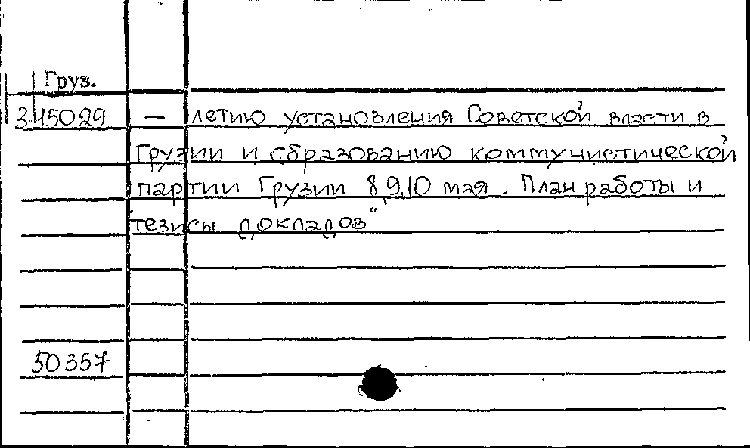 Груз.
3.45029 — летию установления Советской власти в
Грузии и образованию коммунистической
партии Грузии 8,9,10 мая. План работы и
тезисы докладов"
50357